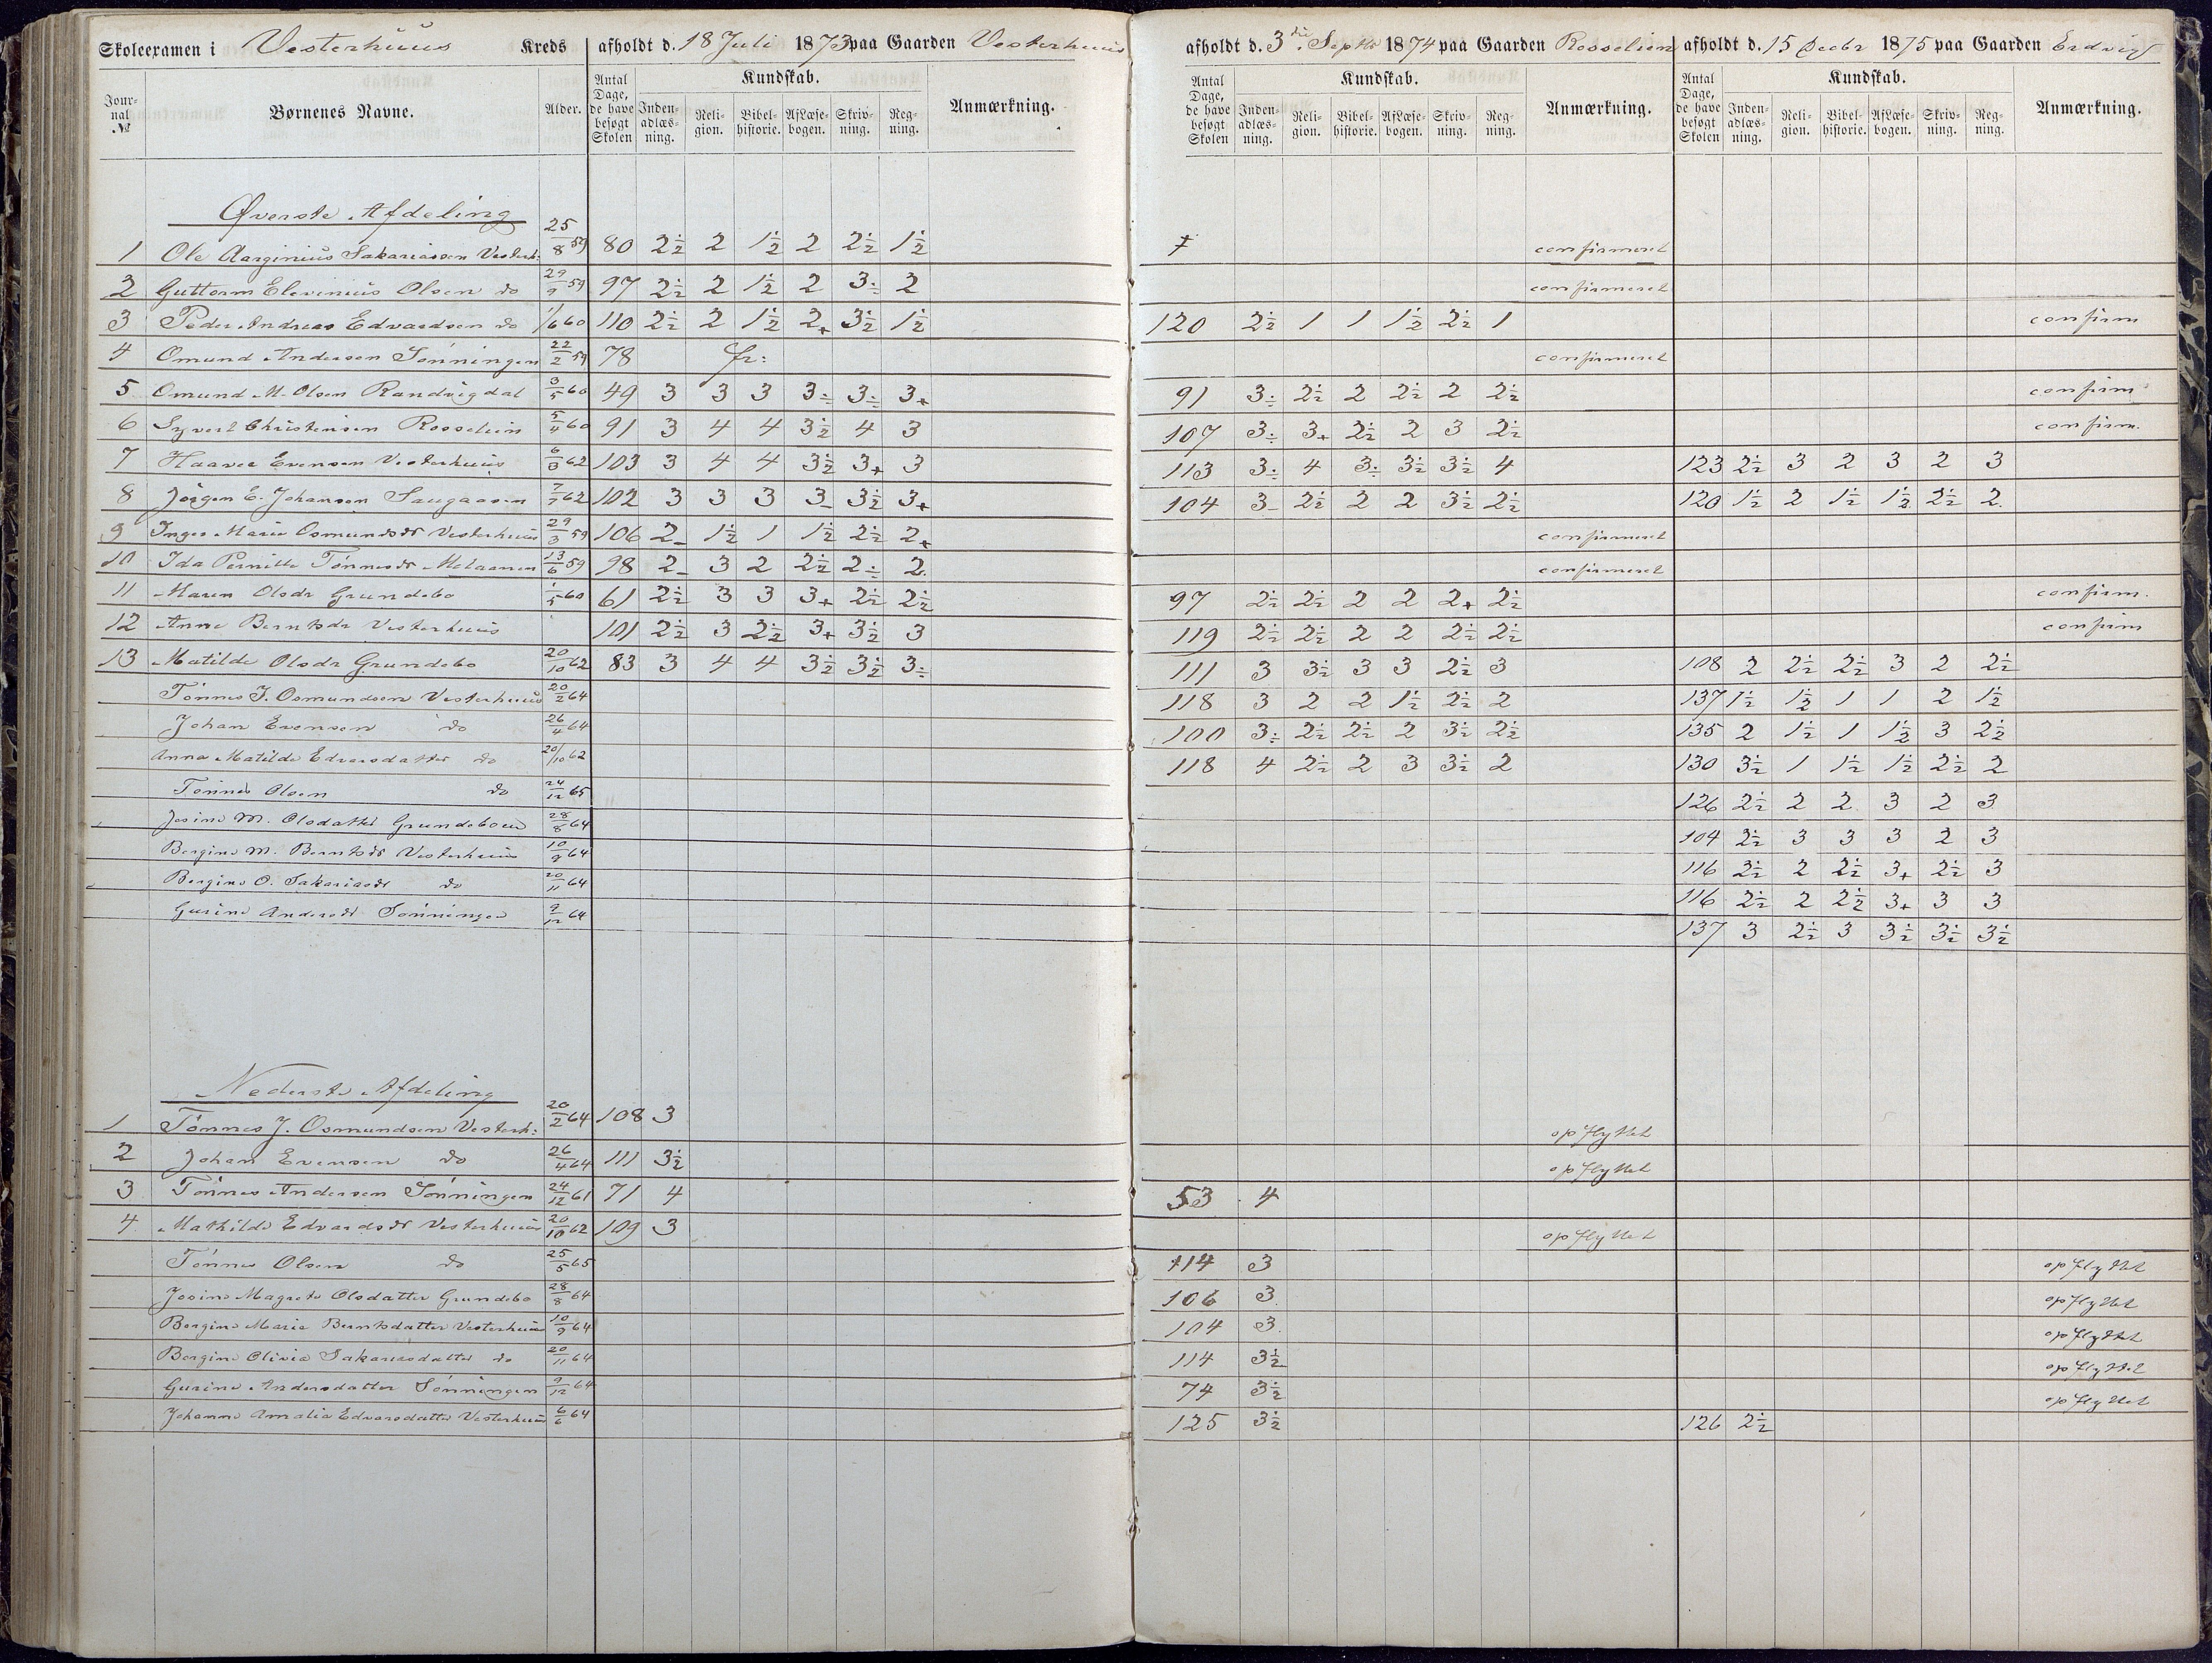 Skoleexamen i Vesterhuus Kreds afholdt d. 18 Juli 1873 paa Gaarden Vesterhuus afholdt d. 3die Septbr 1874 paa Gaarden Rosselien afholdt d. 15 Decbr 1875 paa Gaarden
Jour-nal № Børnenes Navne. Alder. Antal Dage, de have besøgt Skolen Kundskab. Inden-adlæs-ning. Reli-gion. Bibel-historie. Af Læse-bogen. Skriv-ning. Reg-ning. Anmærkning. Antal Dage, de have besøgt Skolen Kundskab. Inden-adlæs-ning. Reli-gion. Bibel-historie. Af Læse-bogen. Skriv-ning. Reg-ning. Anmærkning. Antal Dage, de have besøgt Skolen Kundskab. Inden-adlæs-ning. Reli-gion. Bibel-historie. Af Læse-bogen. Skriv-ning. Reg-ning. Anmærkning.
Øverste Afdeling
1 Ole Aarginius Sakariassen Vesterh: 25/8 59 80 2½ 2 1½ 2 2½ 1½ confirmeret
2 Guttorm Elevinius Olsen do 29/9 59 97 2½ 2 1½ 2 3÷ 2 confirmeret
3 Peder Andreas Edvardsen do 1/6 60 110 2½ 2 1½ 2+ 3½ 1½ 120 2½ 1 1 1½ 2½ 1 confirm
4 Omund Andersen Sønningen 22/2 59 78 fr: confirmeret
5 Omund M. Olsen Randvigdal 3/5 60 49 3 3 3 3÷ 3÷ 3+ 91 3÷ 2½ 2 2½ 2 2½ confirm
6 Syvert Christensen Rosselien 5/4 60 91 3 4 4 3½ 4 3 107 3÷ 3+ 2½ 2 3 2½ confirm.
7 Haaver Evensen Vesterhuus 6/3 62 103 3 4 4 3½ 3+ 3 113 3÷ 4 3÷ 3½ 3½ 4 123 2½ 3 2 3 2 3
8 Jörgen E. Johansen Saugaasen 7/7 62 102 3 3 3 3- 3½ 3+ 104 3- 2½ 2 2 3½ 2½ 120 1½ 2 1½ 1½ 2½ 2
9 Inger Marie Osmundsdr Vesterhuus 29/3 59 106 2- 1½ 1 1½ 2½ 2+ confirmeret
10 Ida Pernille Tönnesdr 13/6 59 98 2- 3 2 2½ 2÷ 2 confirmeret
11 Maren Olsdr Grundebo 1/5 60 61 2½ 3 3 3+ 2½ 2½ 97 2½ 2½ 2 2 2+ 2½ confirm.
12 Anne Berntsdr Vesterhuus 101 2½ 3 2½ 3+ 3½ 3 119 2½ 2½ 2 2 2½ 2½ confirm
13 Matilde Olsdr Grundebo 20/10 62 83 3 4 4 3½ 3½ 3÷ 111 3 3½ 3 3 2½ 3 108 2 2½ 2½ 3 2 2½
Tönnes J. Osmundsen Vesterhuus 20/2 64 118 3 2 2 1½ 2½ 2 137 1½ 1½ 1 1 2 1½
Johan Evensen do 26/4 64 100 3÷ 2½ 2½ 2 3½ 2½ 135 2 1½ 1 1½ 3 2½
Anna Matilde Edvarsdatter do 20/10 62 118 4 2½ 2 3 3½ 2 130 3½ 1 1½ 1½ 2½ 2
Tönnes Olsen do 24/12 65 126 2½ 2 2 3 2 3
Josine M. Olsdatter Grundeboen 28/8 64 104 2½ 3 3 3 2 3
Bergine M. Berntsdr Vesterhuus 10/9 64 116 3½ 2 2½ 3+ 2½ 3
Bergine O. Sakariasdr do 20/11 64 116 2½ 2 2½ 3+ 3 3
Gurine Andersdr Sønningen 9/12 64 137 3 2½ 3 3½ 3½ 3½
Nederste Afdeling
1 Tönnes J. Osmundsen Vesterh: 20/2 64 108 3 opflyttet
2 Johan Evensen do 26/4 64 111 3½ opflyttet
3 Tönnes Andersen Sønningen 24/12 61 71 4 53 4
4 Mathilde Edvardsdr Vesterhuus 20/10 62 109 3 opflyttet
Tönnes Olsen do 25/5 65 114 3 opflyttet
Josine Magrete Olsdatter Grundebo 28/8 64 106 3 opflyttet
Bergine Marie Berntsdatter Vesterhuus 10/9 64 104 3 opflyttet
Bergine Olivia Sakariasdatter do 20/11 64 114 3½ opflyttet
Gurine Andersdatter Sønningen 9/12 64 74 3½ opflyttet
Johanne Amalia Edvarsdatter Vesterhuus 6/6 64 125 3½ 126 2½